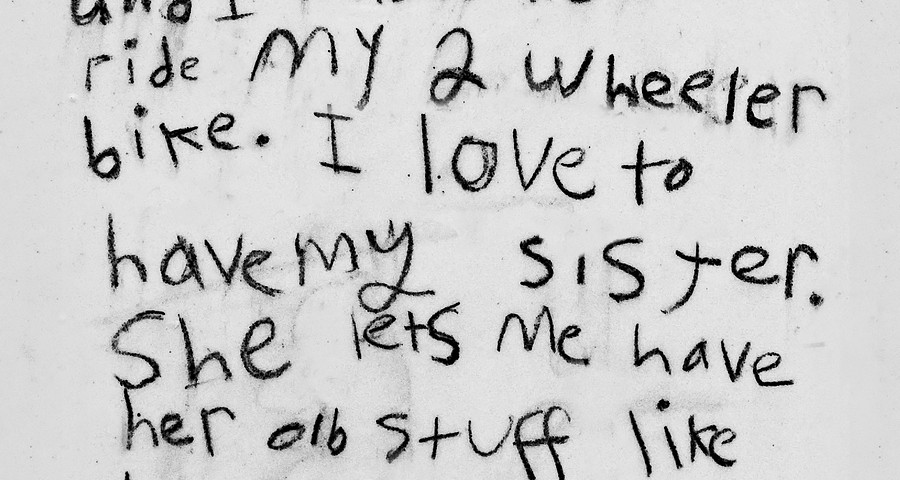 and I
ride my 2 wheeler
bike. I love to
have my sister.
She lets me have
her olb stuff like